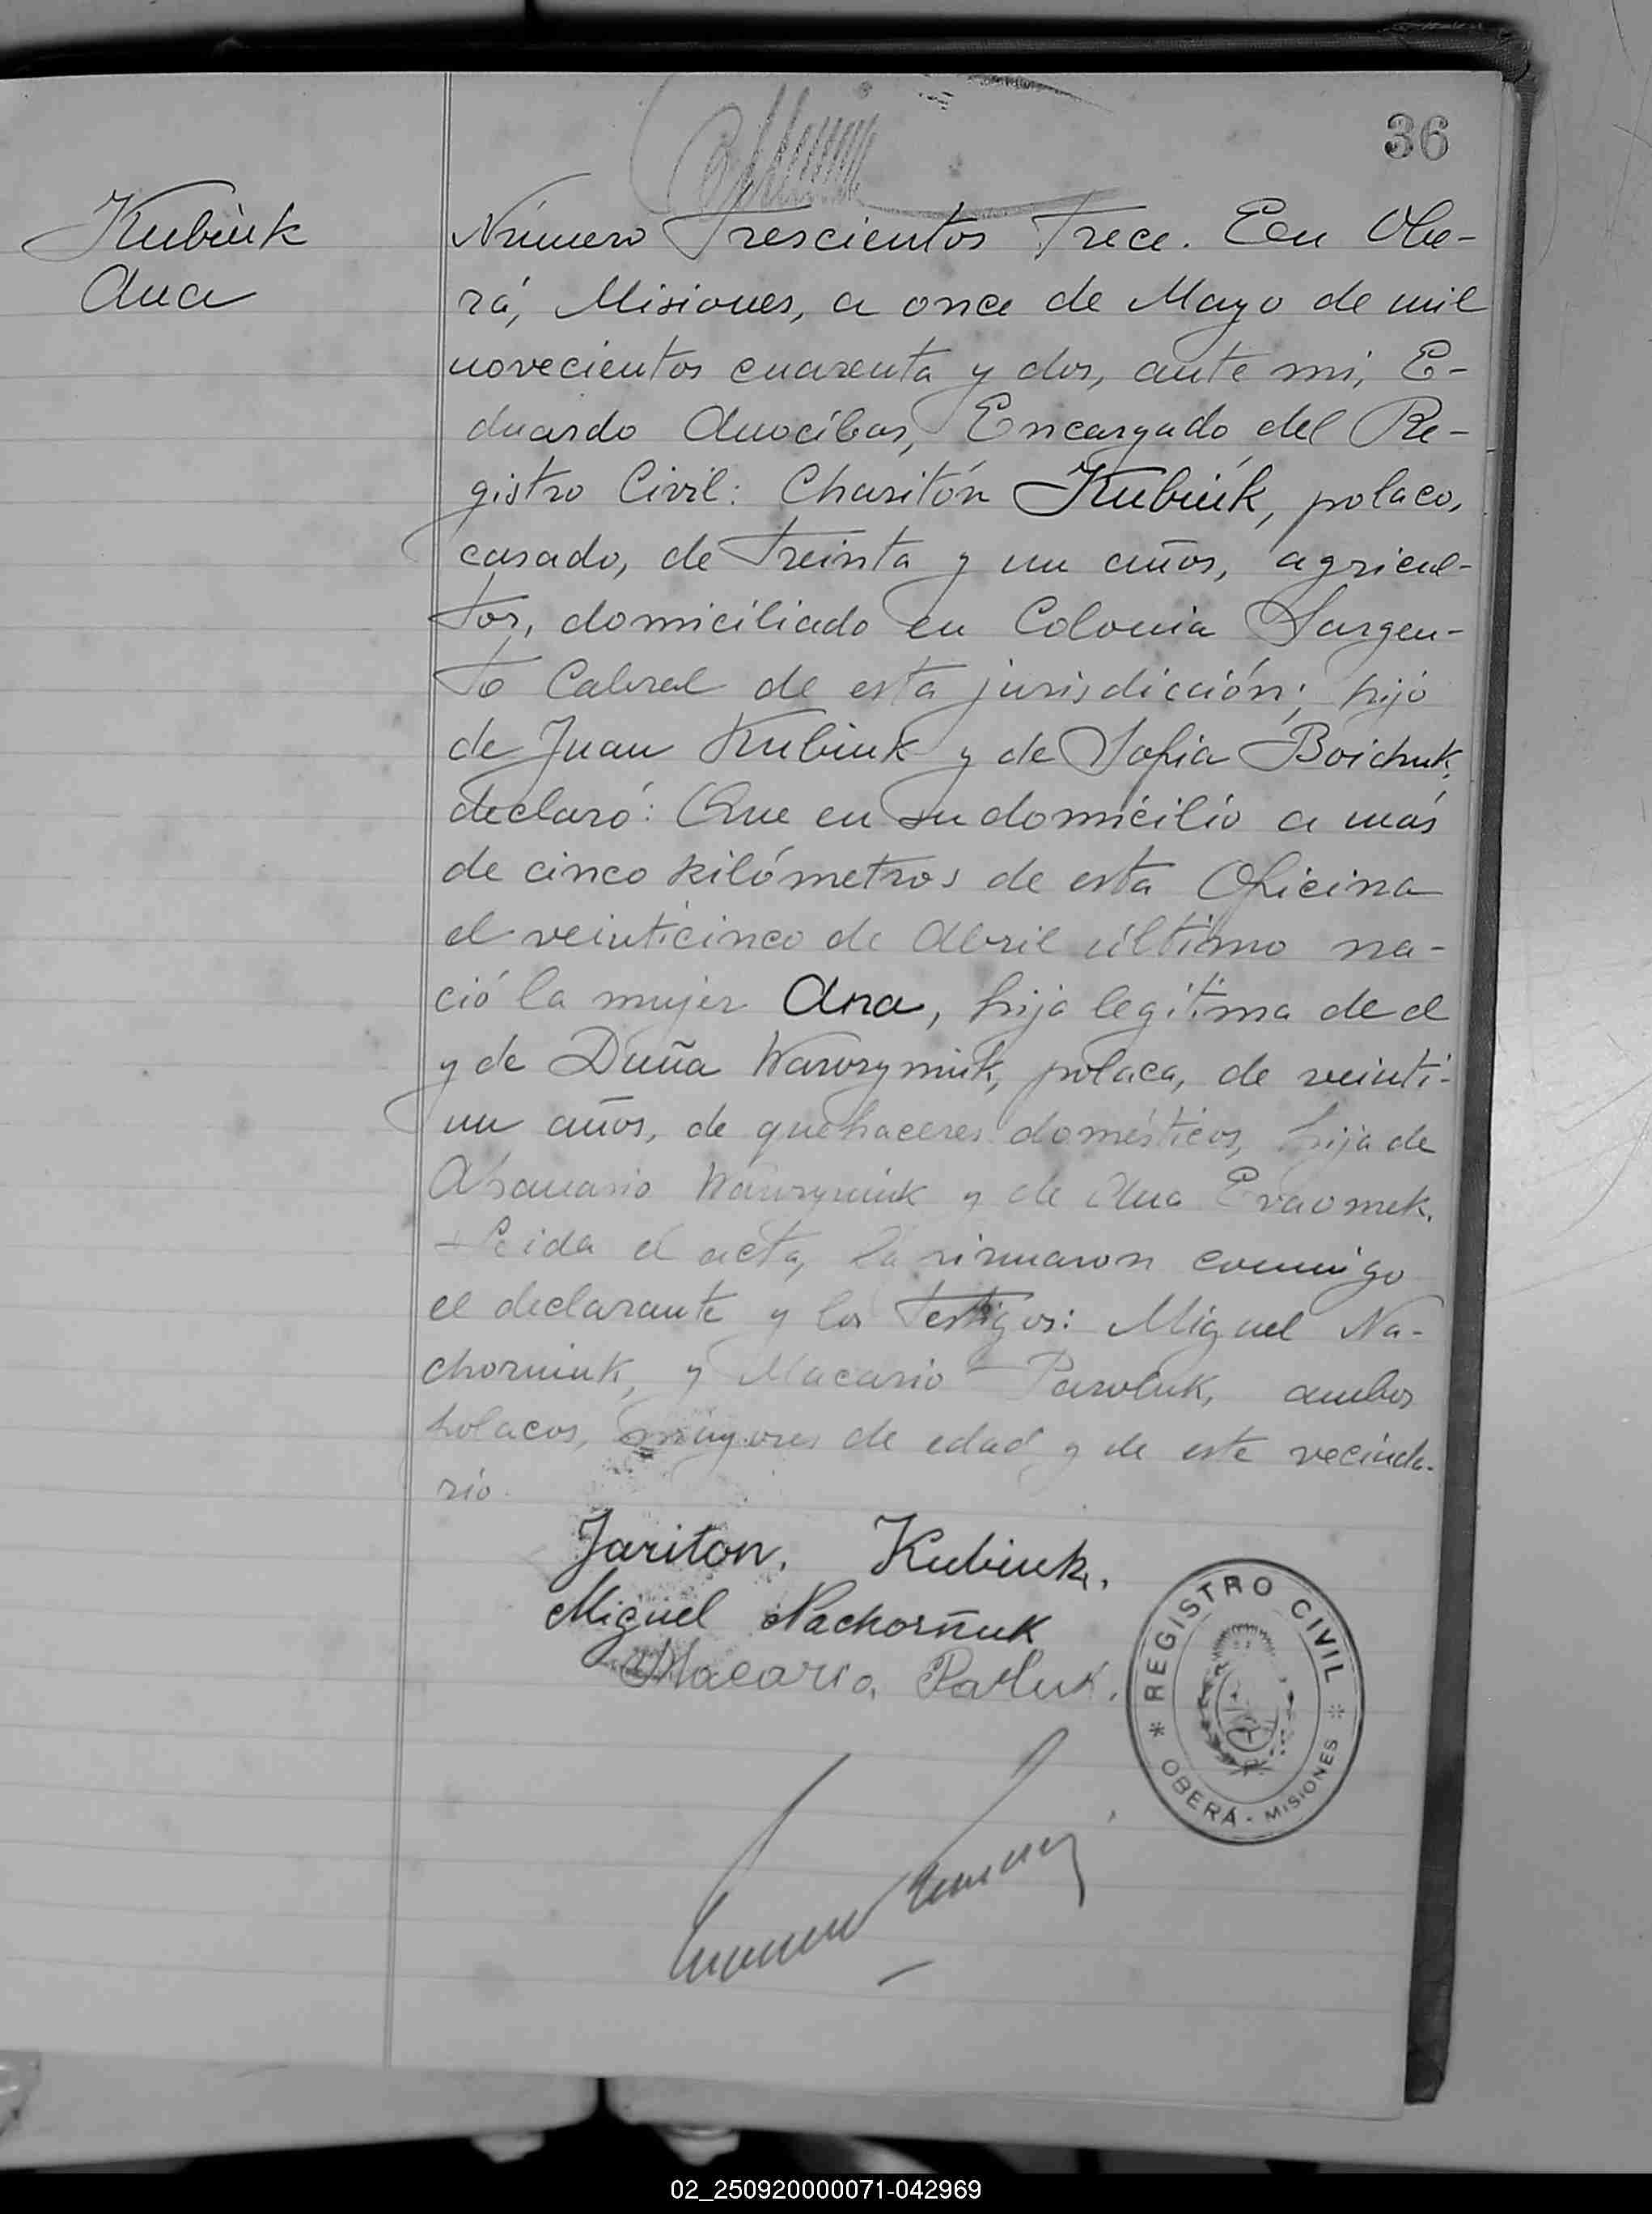 36
Kubiuk
Ana
Número Trescientos Trece. En Obe-
rá, Misiones, a once de Mayo de mil
novecientos cuarenta y dos, ante mi, E-
duardo Anocíbar, Encargado del Re-
gistro Civil: Charitón Kubiuk, polaco,
casado, de treinta y un años, agricul-
tor, domiciliado en Colonia Sargen-
to Cabral de esta jurisdicción; hijo
de Juan Kubiuk y de Sofia Boichuk,
declaró: Que en su domicilio a más
de cinco kilómetros de esta Oficina
el veinticinco de Abril último na-
ció la mujer Ana, hija legítima de el
y de Duña Wawryniuk, polaca, de veinti-
un años, de quehaceres domésticos, hija de
Afanasio Wawryniuk y de Ana
Leida el acta, la firmaron conmigo
el declarante y los testigos: Miguel Na-
chorniuk, y Macario Pawluk, ambos
polacos, mayores de edad y de este vecinda-
rio.
Jariton. Kubiuk.
Miguel Nachorñuk
Macario. Pavluk.
REGISTRO CIVIL
OBERÁ - MISIONES
02_250920000071-042969